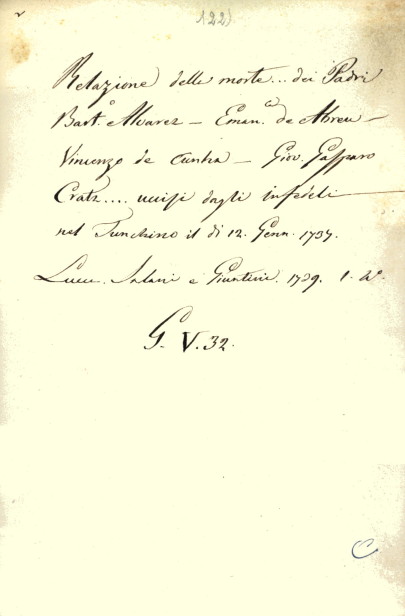 122)
Relazione della morte... dei Padri
Bart.º Alvarez – Eman. de Abreu –
Vincenzo de Cunha – Giov. Gasparo
Cratz.... uccisi dagli infedeli
nel Tunchino il dì 12. Genn. 1737.
Lucca. Salani e Giuntini. 1739. 1.
G. V. 32.
C